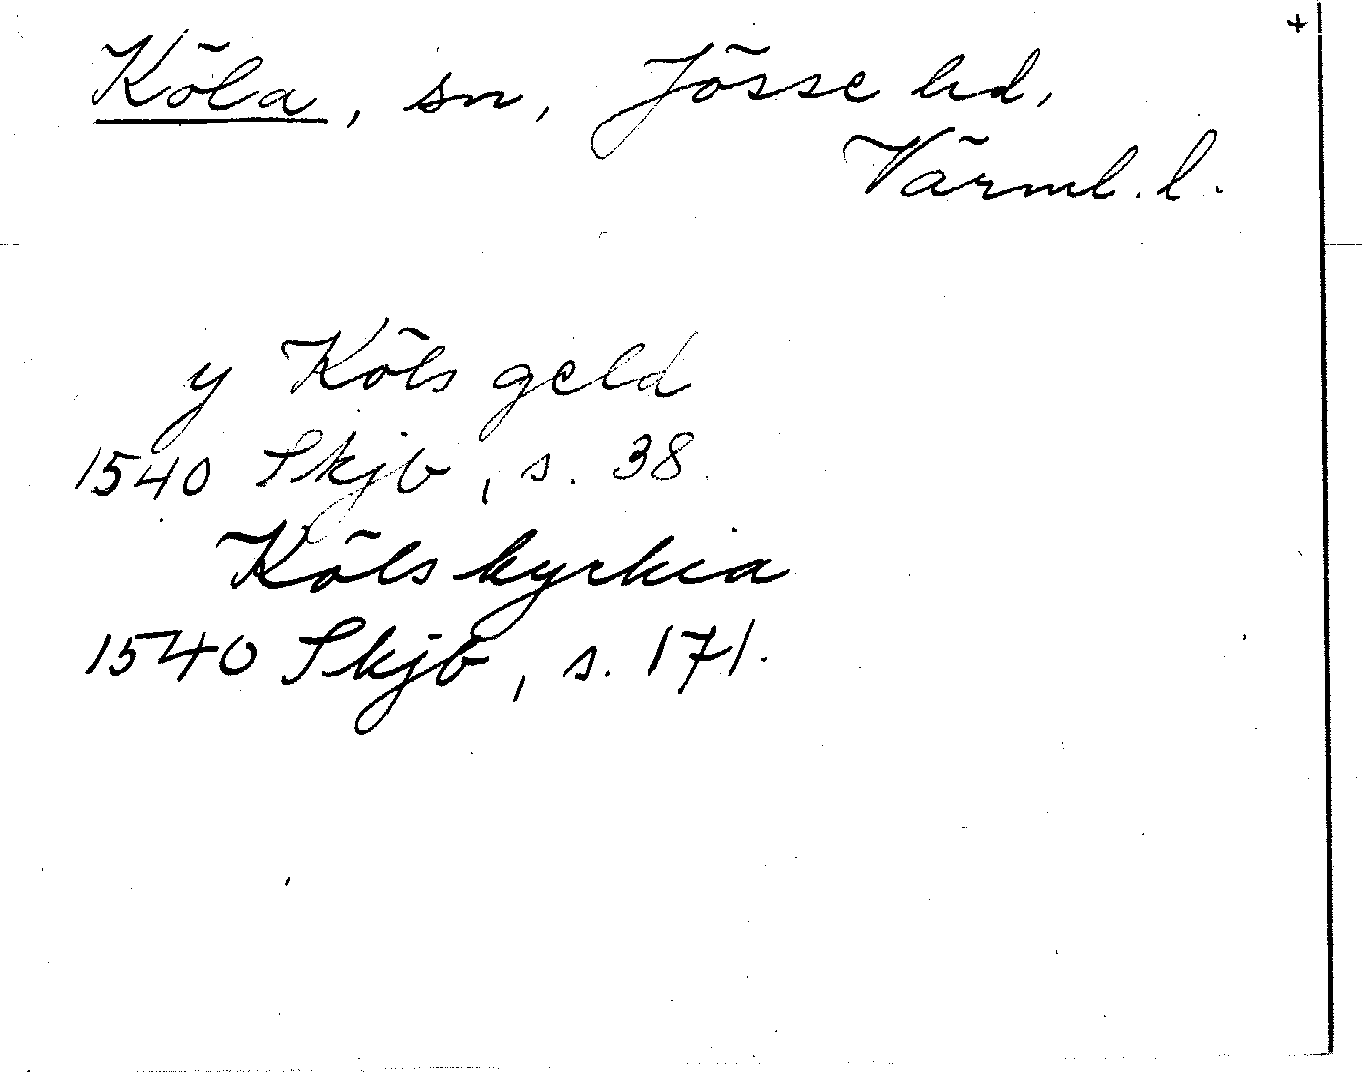 +
Köla, sn, Jösse hd,
Värml. l.
y Köls geld
1540 Skjb, s. 38.
Köls kyrkia
1540 Skjb, s. 171.